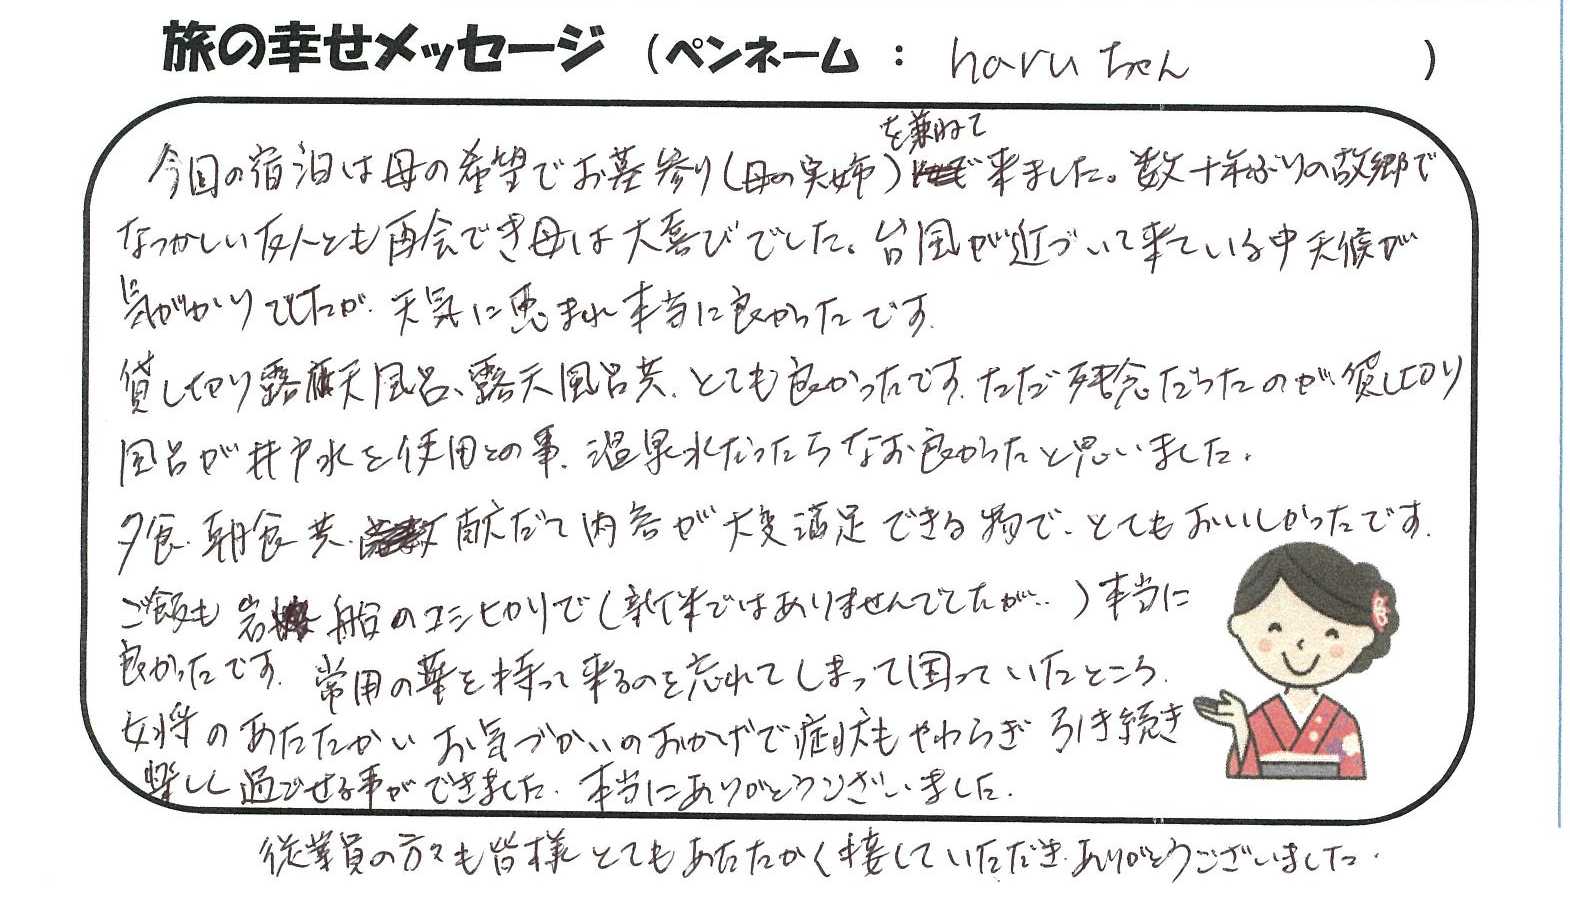 旅の幸せメッセージ（ペンネーム：haruちゃん）
今回の宿泊は母の希望でお墓参り（母の実姉）を兼ねて来ました。数十年ぶりの故郷で
なつかしい友人とも再会でき母は大喜びでした。台風が近づいて来ている中天候が
気がかりでしたが、天気に恵まれ本当に良かったです。
貸し切り露天風呂、露天風呂共、とても良かったです。ただ残念だったのが、貸し切り
風呂が井戸水を使用との事、温泉水だったらなお良かったと思いました。
夕食、朝食共、献だて内容が大変満足できる物で、とてもおいしかったです。
ご飯も岩船のコシヒカリで（新米ではありませんでしたが..）本当に
良かったです。常用の薬を持って来るのを忘れてしまって困っていたところ、
女将のあたたかいお気づかいのおかげで症状もやわらぎ引き続き
楽しく過ごせる事ができました。本当にありがとうございました。
従業員の方々も皆様とてもあたたかく接していただき、ありがとうございました。